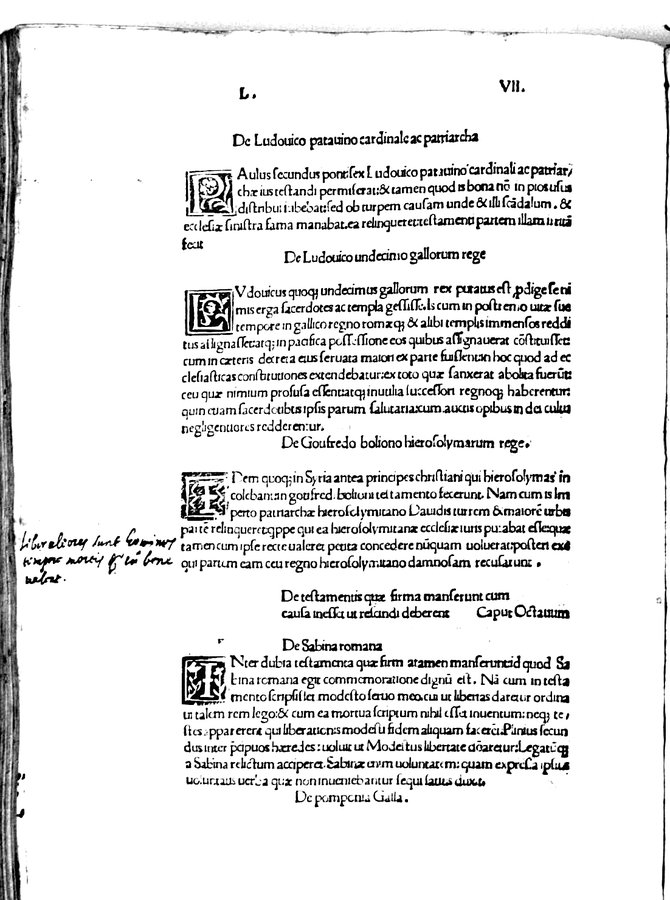 L. VII.
De Ludouico patauino cardinale ac patriarcha
PAulus secundus pontifex Ludouico patauino cardinali ac patriar/
chæ ius testandi permiserat: & tamen quod is bona nō in pios usus
distribui iubebat: sed ob turpem causam unde & illi scādalum. &
ecclesiæ sinistra fama manabat. ea relinqueret: testamenti partem illam irritā
fecit
De Ludouico undecimo gallorum rege
LVdouicus quoq; undecimus gallorum rex putatus est ꝓdige se ni
mis erga sacerdotes ac templa gessisse. Is cum in postremo uitæ suæ
tempore in gallico regno romæq; & alibi templis immensos reddi
tus assignasset atq; in pacifica possessione eos quibus assignauerat cōstituisset
cum in cæteris decreta eius seruata maiori ex parte fuissent in hoc quod ad ec
clesiasticas constitutiones extendebatur: ex toto quæ sanxerat abolita fuerūt
ceu quæ nimium profusa essent atq; inutilia successori regnoq; haberentur:
quin etiam sacerdotibus ipsis parum salutaria: cum auctis opibus in dei cultu
negligentiores redderentur.
De Goufredo boliono hierosolymarum rege.
ITem quoq; in Syria antea principes christiani qui hierosolymas in
colebant in goufredi bolioni testamento fecerunt. Nam cum is im
perto patriarchæ hierosolymitano Dauidis turrem & maiorē urbis
partē relinqueret: quippe qui ea hierosolymitanæ ecclesiæ iuris putabat esse quæ
tamen cum ipse recte ualeret penita concedere nūquam uoluerat: posteri eius
qui partem eam ceu regno hierosolymitano damnosam recusarunt.
Liberaliores sunt homines
tempore mortis
ualent.
De testamentis quæ firma manserunt cum
causa inesset ut rescindi deberent Caput Octauum
De Sabina romana
INter dubia testamenta quæ firma tamen manserunt id quod Sa
bina romana egit commemoratione dignū est. Nā cum in testa
mento scripsisset modesto seruo meo cui ut libertas daretur ordina
ui talem rem lego: & cum ea mortua scriptum nihil esset inuentum: neq; te/
stes apparerent qui liberationis modesti fidem aliquam facerēt. Plinius secun
dus inter præcipuos hæredes: uoluit ut Modestus libertate donaretur: Legatūq;
a Sabina relictum acciperet. Sabinæ enim uoluntatem: quam expressa ipsius
uoluntatis uerba quæ non inueniebantur sequi satius duxit.
De pomponia Galla.